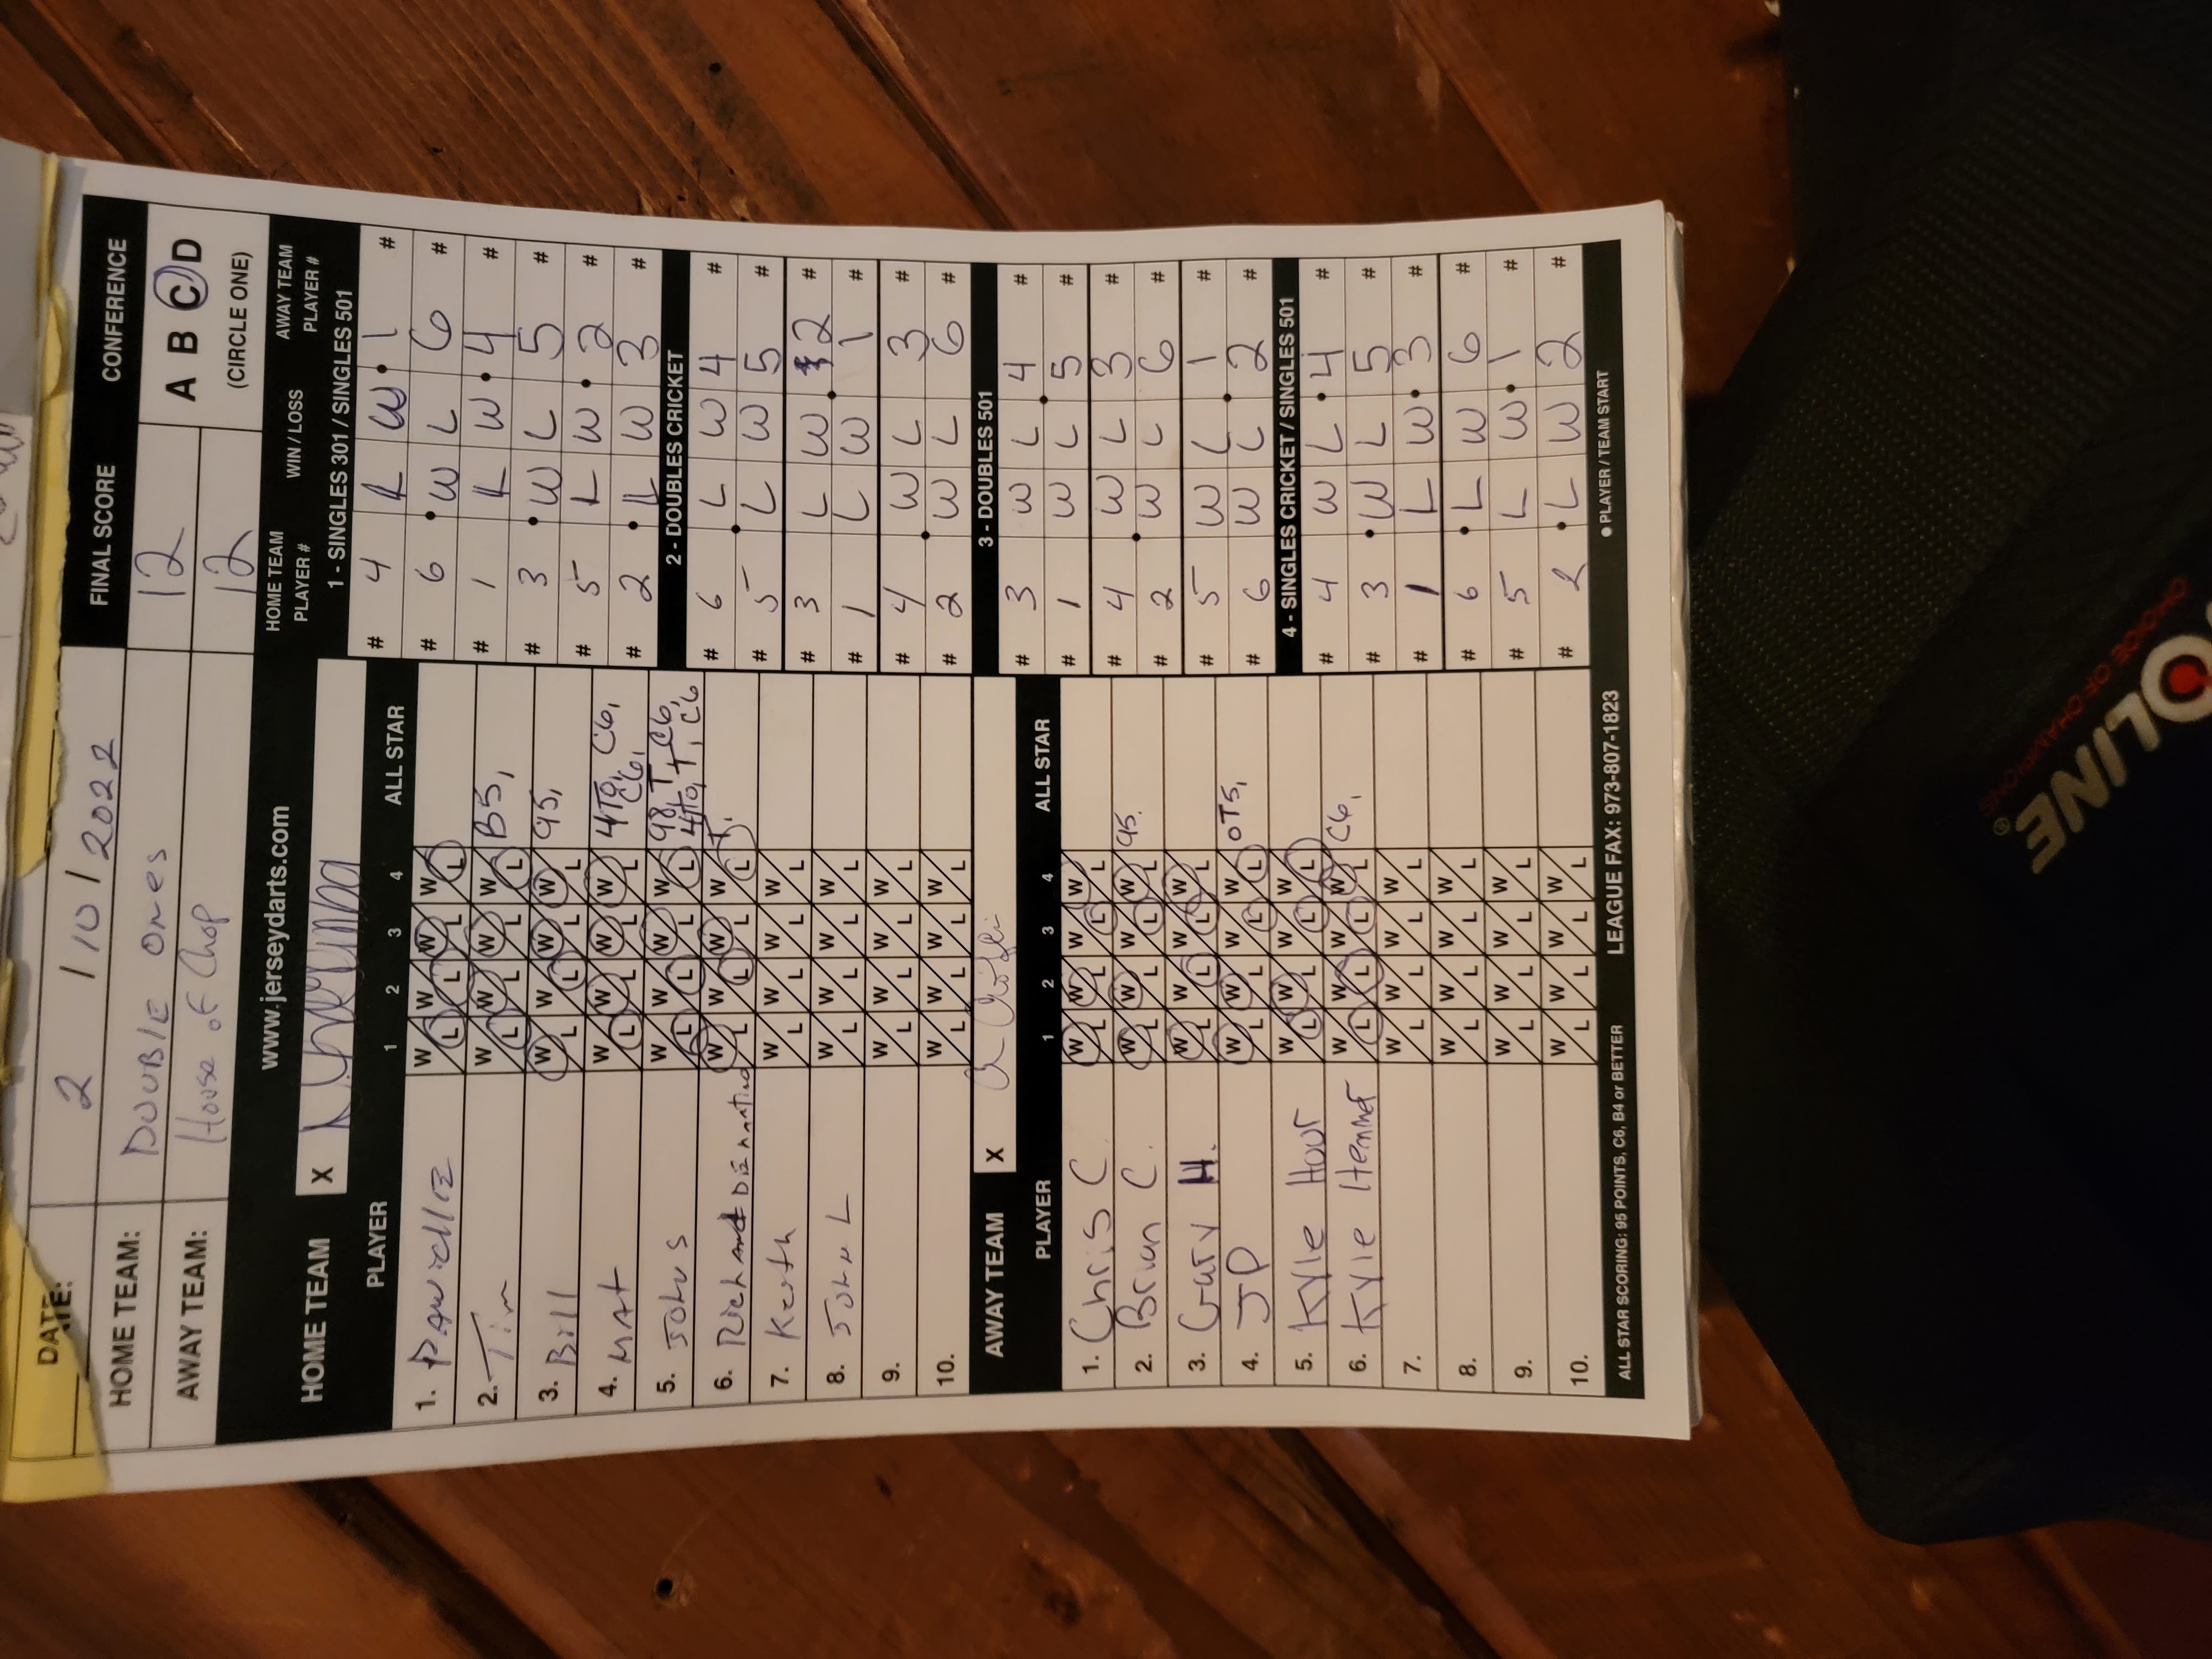 DATE: 2 / 10 / 2022 FINAL SCORE CONFERENCE
HOME TEAM: DOUBLE ONES 12 A B C D
AWAY TEAM: House of Chop 12 (CIRCLE ONE)
www.jerseydarts.com
HOME TEAM X
PLAYER 1 2 3 4 ALL STAR
1. W L W L W L W L
2. Tim W L W L W L W L B5,
3. Bill W L W L W L W L 95,
4. MAT W L W L W L W L 4T9, C6, C6,
5. JOHN S W L W L W L W L 98, T, C6, 4T9, T, C6
6. W L W L W L W L T,
7. Keith W L W L W L W L
8. JOHN L W L W L W L W L
9. W L W L W L W L
10. W L W L W L W L
AWAY TEAM X
PLAYER 1 2 3 4 ALL STAR
1. Chris C. W L W L W L W L
2. Brian C. W L W L W L W L 95.
3. Gary H. W L W L W L W L
4. JP W L W L W L W L OT5,
5. Kyle Hour W L W L W L W L
6. Kyle Hemmer W L W L W L W L C6,
7. W L W L W L W L
8. W L W L W L W L
9. W L W L W L W L
10. W L W L W L W L
HOME TEAM PLAYER # WIN / LOSS AWAY TEAM PLAYER #
1 - SINGLES 301 / SINGLES 501
# 4 L W 1 #
# 6 W L 6 #
# 1 L W 4 #
# 3 W L 5 #
# 5 L W 2 #
# 2 L W 3 #
2 - DOUBLES CRICKET
# 6 L W 4 #
# 5 L W 5 #
# 3 L W 2 #
# 1 L W 1 #
# 4 W L 3 #
# 2 W L 6 #
3 - DOUBLES 501
# 3 W L 4 #
# 1 W L 5 #
# 4 W L 3 #
# 2 W L 6 #
# 5 W L 1 #
# 6 W L 2 #
4 - SINGLES CRICKET / SINGLES 501
# 4 W L 4 #
# 3 W L 5 #
# 1 L W 3 #
# 6 L W 6 #
# 5 L W 1 #
# 2 L W 2 #
● PLAYER / TEAM START
ALL STAR SCORING: 95 POINTS, C6, B4 or BETTER LEAGUE FAX: 973-807-1823
OLINE®
CHOICE OF CHAMPIONS